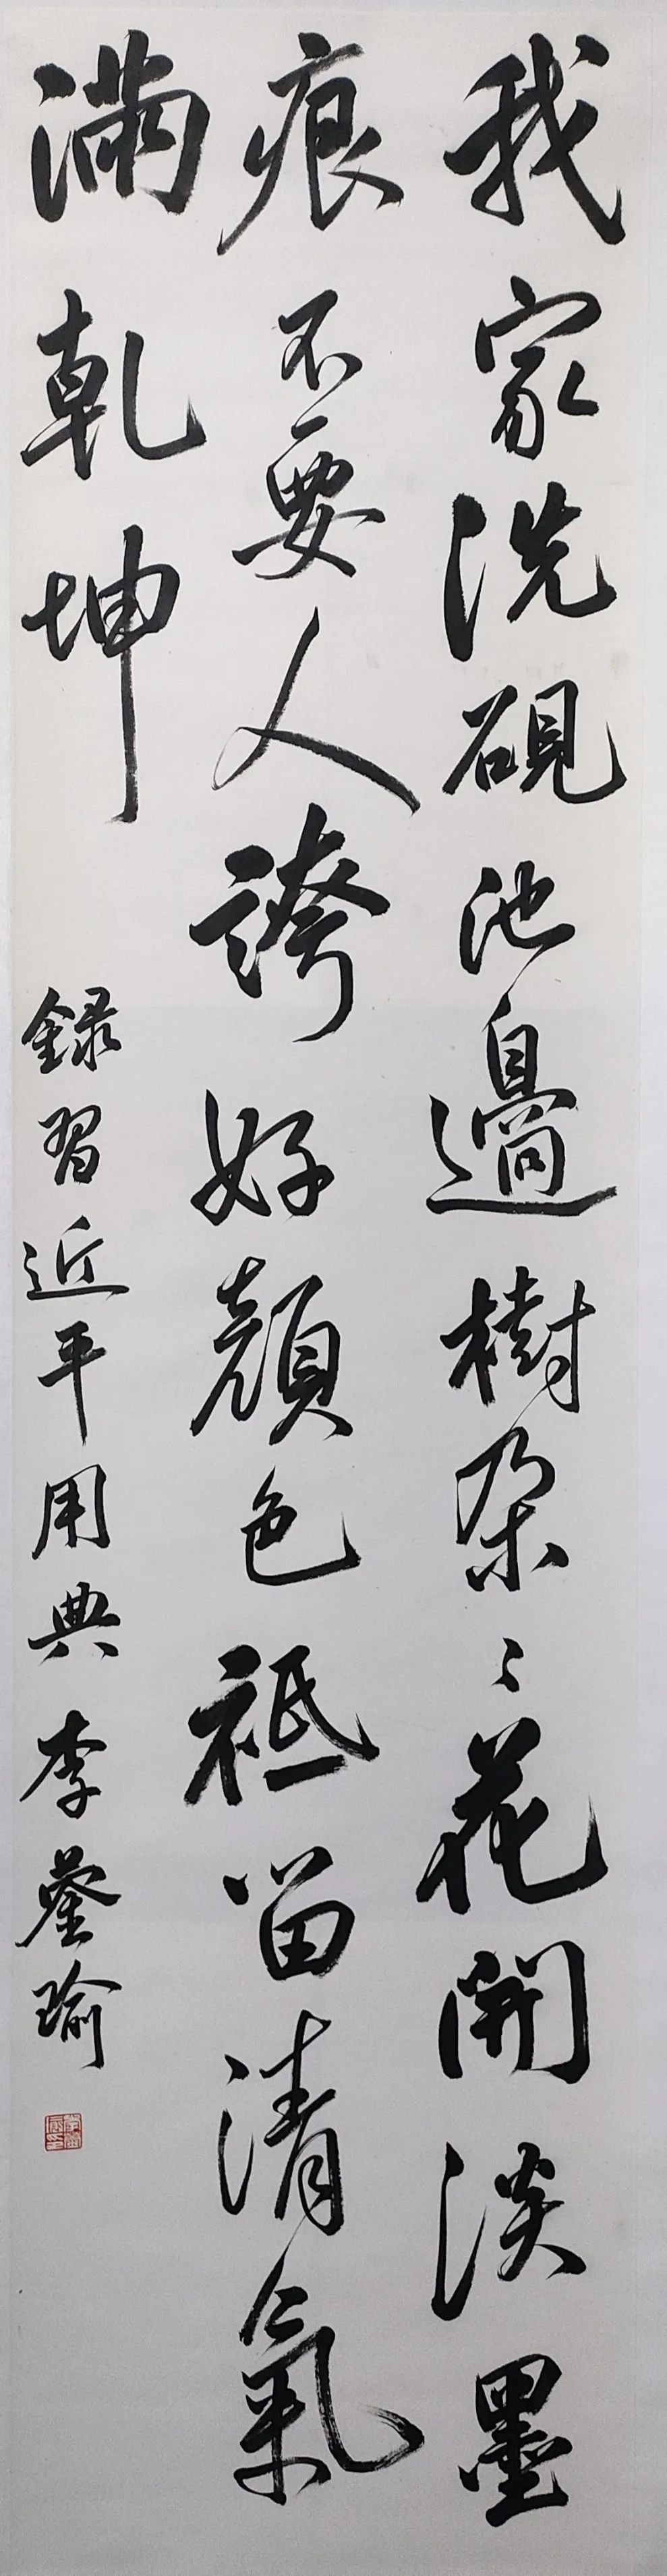 我家洗硯池邊樹朵〻花開淡墨
痕不要人誇好顏色祗留清氣
滿乾坤
錄習近平用典李蓥瑜